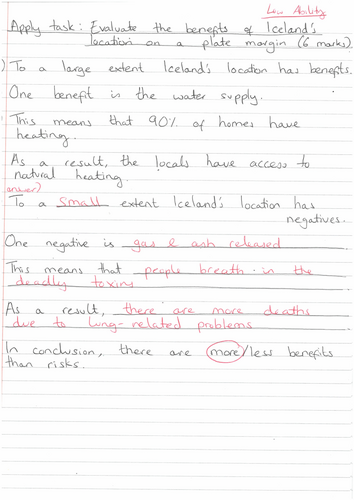 Low Ability
Apply task: Evaluate the benefits of Iceland's
location on a plate margin (6 marks)
) To a large extent Iceland's location has benefits.
One benefit is the water supply.
This means that 90% of homes have
heating.
As a result, the locals have access to
natural heating.
answer)
To a small extent Iceland's location has
negatives.
One negative is gas & ash released
This means that people breath in the
deadly toxins
As a result, there are more deaths
due to lung-related problems
In conclusion, there are more/less benefits
than risks.